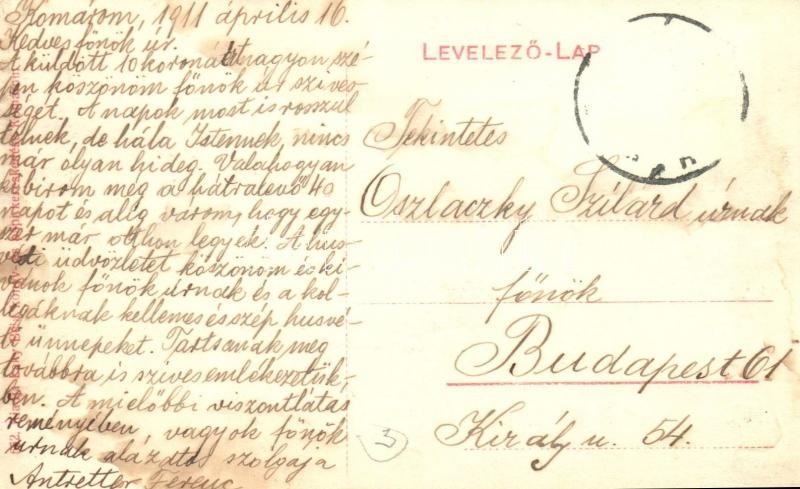 Komárom, 1911 április 16.
Kedves főnök úr.
A küldött 10 koronát nagyon szé-
pen köszönöm főnök úr szives-
ségét. A napok most is rosszul
telnek, de hála Istennek, nincs
már olyan hideg. Valahogyan
kibirom még a hátralevő 40
napot és alig várom, hogy egy-
szer már otthon legyek. A hús-
véti üdvözletet köszönöm és ki-
vánok főnök úrnak és a kol-
legáknak kellemes és szép husvé-
ti ünnepeket. Tartsanak meg
továbbra is szives emlékezetük-
ben. A mielőbbi viszontlátás
reményében, vagyok főnök
úrnak alázatos szolgája
Antretter Ferenc
LEVELEZŐ-LAP
Tekintetes
Oszlaczky Szilárd úrnak
főnök
Budapest 61
Király u. 54.
3